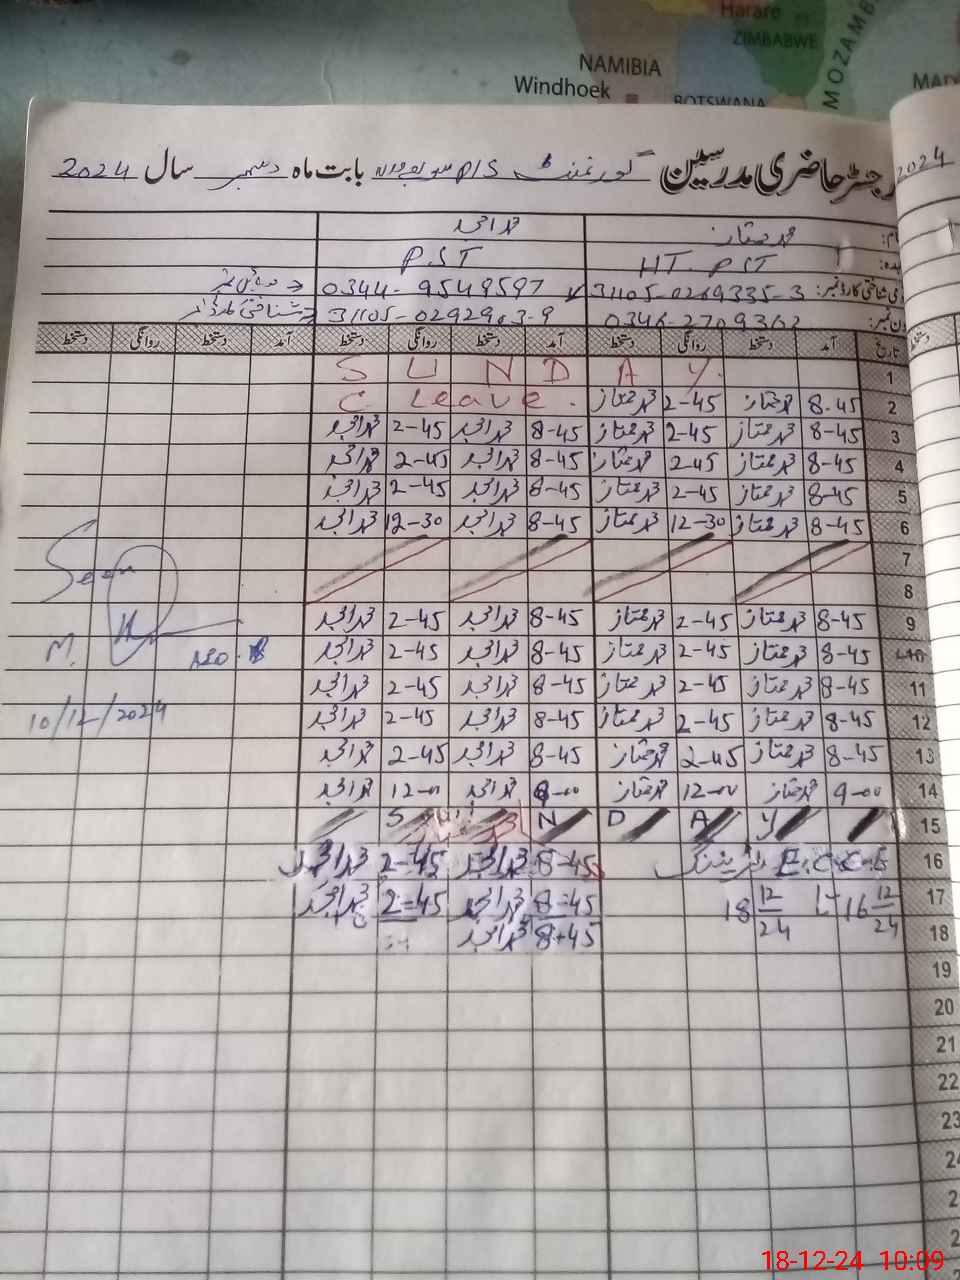 Harare
ZIMBABWE
NAMIBIA
Windhoek
BOTSWANA
MOZAMB
MAD
رجسٹر حاضری مدرسین گورنمنٹ P/S بابت ماہ دسمبر سال 2024
2024
محمد ممتاز محمد امجد
HT. PST P.S.T
شناختی کارڈ نمبر: 31105-0269335-3 0344-9549597
فون نمبر: 0346-2709362 31105-0292903-9 شناختی کارڈ نمبر
تاریخ آمد دستخط روانگی دستخط آمد دستخط روانگی دستخط آمد دستخط روانگی دستخط
1 S U N D A Y.
2 8-45 محمد ممتاز 2-45 محمد ممتاز C Leave.
3 8-45 محمد ممتاز 2-45 محمد ممتاز 8-45 محمد امجد 2-45 محمد امجد
4 8-45 محمد ممتاز 2-45 محمد ممتاز 8-45 محمد امجد 2-45 محمد امجد
5 8-45 محمد ممتاز 2-45 محمد ممتاز 8-45 محمد امجد 2-45 محمد امجد
6 8-45 محمد ممتاز 12-30 محمد ممتاز 8-45 محمد امجد 12-30 محمد امجد
7
8
9 8-45 محمد ممتاز 2-45 محمد ممتاز 8-45 محمد امجد 2-45 محمد امجد
10 8-45 محمد ممتاز 2-45 محمد ممتاز 8-45 محمد امجد 2-45 محمد امجد
11 8-45 محمد ممتاز 2-45 محمد ممتاز 8-45 محمد امجد 2-45 محمد امجد
12 8-45 محمد ممتاز 2-45 محمد ممتاز 8-45 محمد امجد 2-45 محمد امجد
13 8-45 محمد ممتاز 2-45 محمد ممتاز 8-45 محمد امجد 2-45 محمد امجد
14 9-00 محمد ممتاز 12-00 محمد ممتاز 9-00 محمد امجد 12-00 محمد امجد
15 S U N D A Y
16 E.C.C.E ٹریننگ 8-45 محمد امجد 2-45 محمد امجد
17 16 12/24 تا 18 12/24 8=45 محمد امجد 2=45 محمد امجد
18 8+45 محمد امجد
19
20
21
22
23
Seen
M.
AEO
10/12/2024
18-12-24 10:09